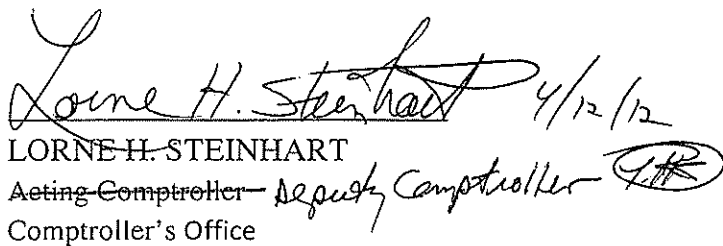 Lorne H. Steinhart 4/12/12
LORNE H. STEINHART
Acting Comptroller Deputy Comptroller
Comptroller's Office